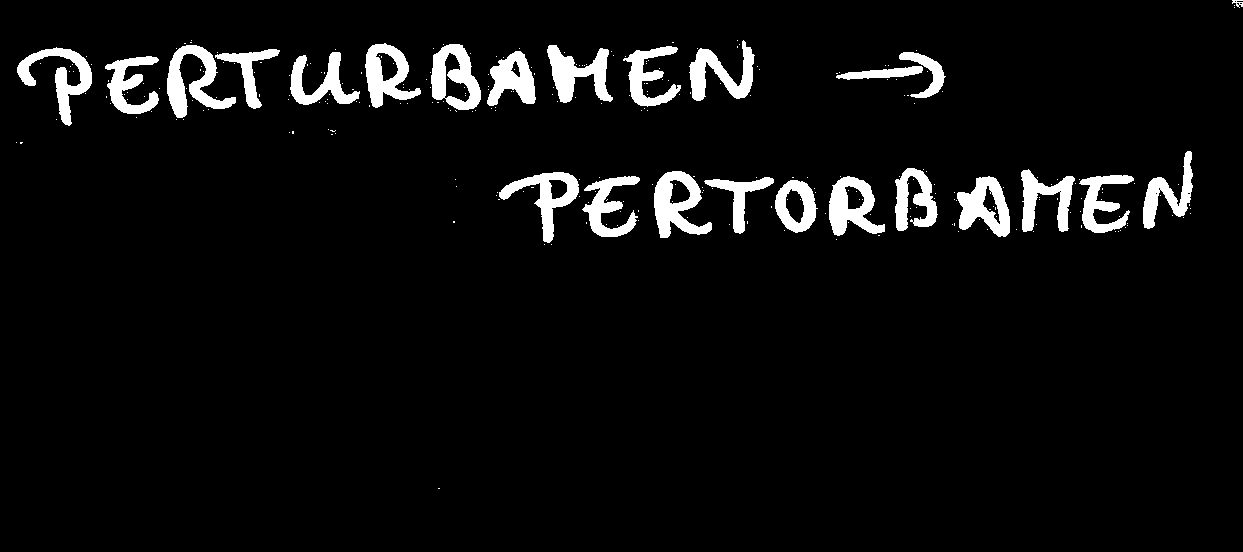 PERTURBAMEN →
PERTORBAMEN